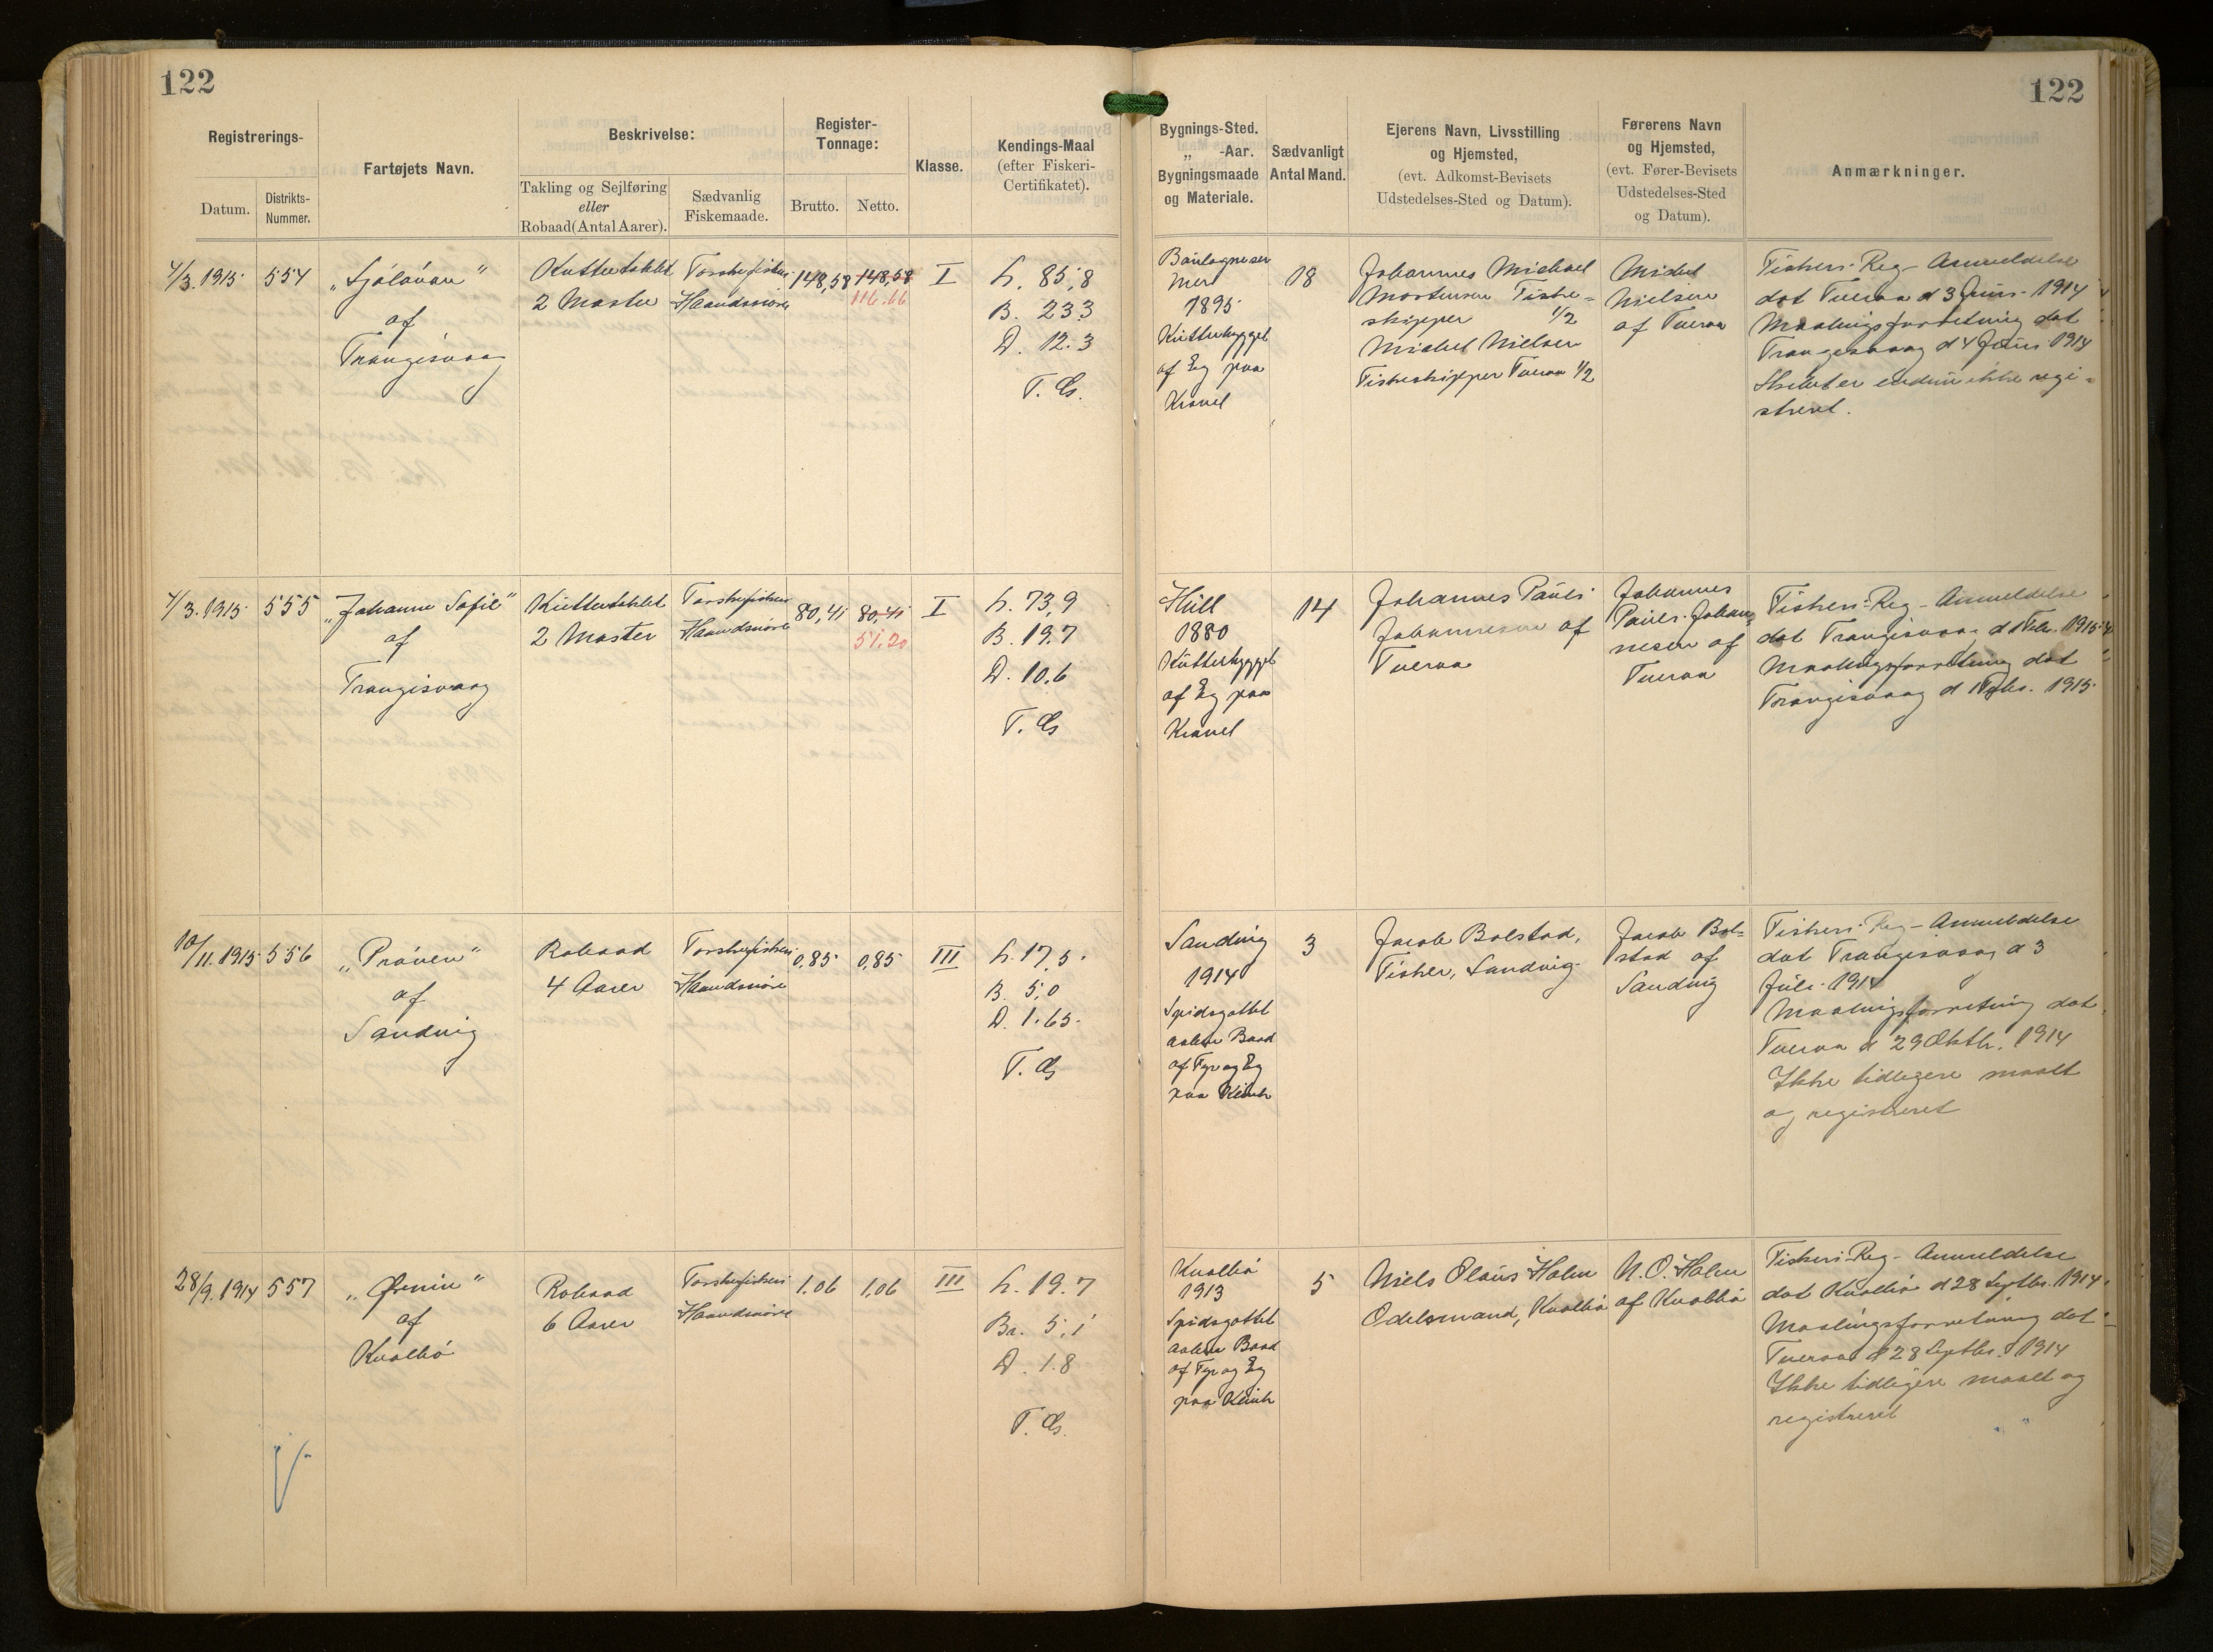 122
122
Registrerings-
Datum.
Distrikts-
Nummer.
Fartøjets Navn.
Beskrivelse:
Takling og Sejlføring
eller
Robaad (Antal Aarer).
Sædvanlig
Fiskemaade.
Register-
Tonnage:
Brutto.
Netto.
Klasse.
Kendings-Maal
(efter Fiskeri-
Certifikatet).
Bygnings-Sted.
„ -Aar.
Bygningsmaade
og Materiale.
Sædvanligt
Antal Mand.
Ejerens Navn, Livsstilling
og Hjemsted,
(evt. Adkomst-Bevisets
Udstedelses-Sted og Datum).
Førerens Navn
og Hjemsted,
(evt. Fører-Bevisets
Udstedelses-Sted
og Datum).
Anmærkninger.
4/3. 1915
554
„Sjóløvan"
af
Trangisvaag
Kuttertaklet
2 Master
Torskefiskeri
Haandsnöre
148,58
148,58
116.66
I
L. 85,8
B. 23.3
D. 12.3
T. G.
1895
Kutterbygget
af Eg paa
Kravel
18
Johannes Michael
Mortensen Fiske-
skipper 1/2
Michel Nielsen
Fiskeskipper Tveraa 1/2
Michel
Nielsen
af Tveraa
Fiskeri-Reg-Anmeldelse
dat Tveraa d 3 Juni 1914
Maalingsforretning dat
Trangisvaag d 4 Juni 1914
Skibet er endnu ikke regi-
streret.
4/3. 1915
555
„Johanne Sofie"
af
Trangisvaag
Kuttertaklet
2 Master
Torskefiskeri
Haandsnöre
80,41
80,41
51.20
I
L. 73,9
B. 19,7
D. 10.6
T. G
Hull
1880
Kutterbygget
af Eg paa
Kravel
14
Johannes Pauli
Johannesen af
Tveraa
Johannes
Pauli Johan-
nesen af
Tveraa
Fiskeri-Reg-Anmeldelse
dat Trangisvaag d 1 Febr. 1915
Maalingsforretning dat
Trangisvaag d 1 Febr. 1915
10/11. 1915
556
„Pröven"
af
Sandvig
Robaad
4 Aarer
Torskefiskeri
Haandsnöre
0,85
0,85
III
L. 17,5
B. 5,0
D. 1.65
T. G
Sandvig
1914
Spidsgattet
aaben Baad
af Fyr og Eg
paa Klink
3
Jacob Bolstad,
Fisker, Sandvig
Jacob Bol-
stad af
Sandvig
Fiskeri-Reg-Anmeldelse
dat Trangisvaag d 3
Juli 1914
Maalingsforretning dat
Tveraa d 29 Oktbr. 1914
Ikke tidligere maalt
og registreret
28/9. 1914
557
„Örnin"
af
Kvalbö
Robaad
6 Aarer
Torskefiskeri
Haandsnöre
1.06
1,06
III
L. 19.7
Br. 5,1
D. 1.8
T. G.
Kvalbö
1913
Spidsgattet
aaben Baad
af Fyr og Eg
paa Klink
5
Niels Olaus Holm
Odelsmand, Kvalbö
N. O. Holm
af Kvalbö
Fiskeri-Reg-Anmeldelse
dat Kvalbö d 28 Septbr. 1914
Maalingsforretning dat
Tveraa d 28 Septbr. 1914
Ikke tidligere maalt og
registreret